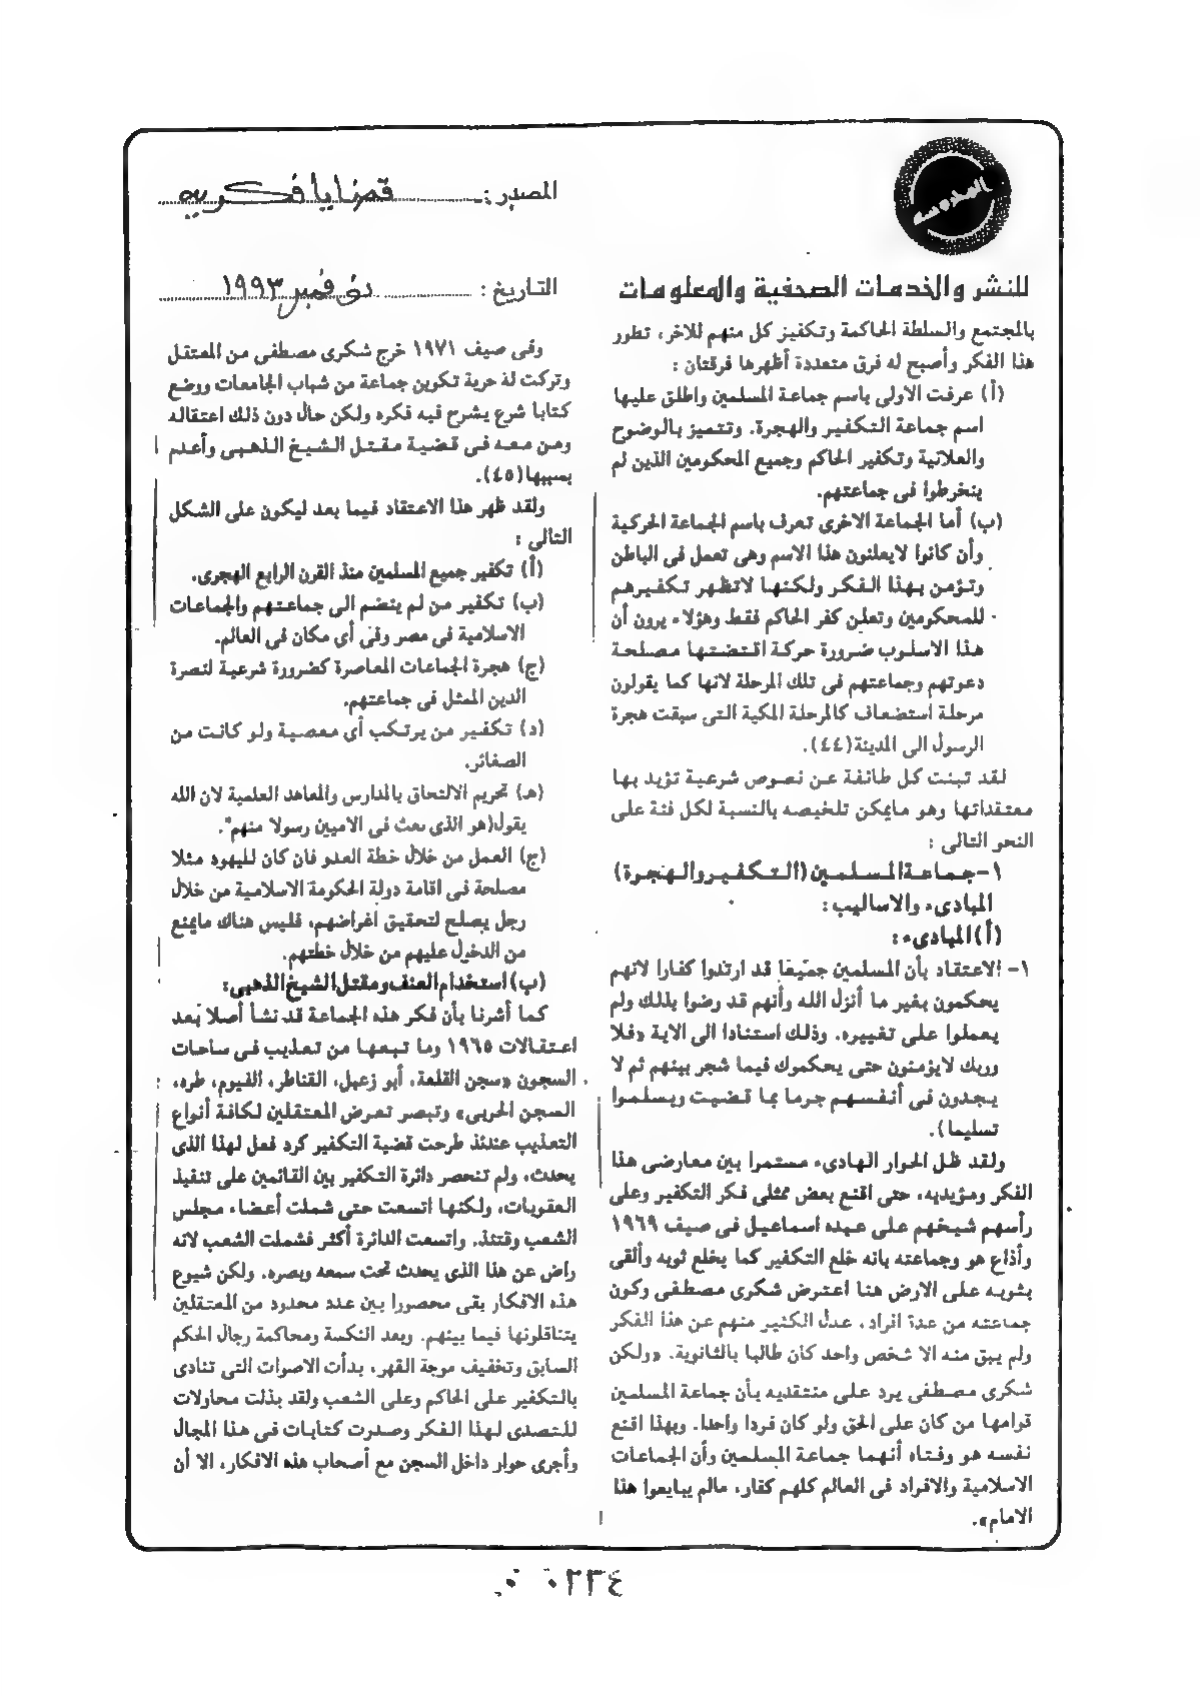 المدرسه
للنشر والخدمات الصحفية والمعلومات
المصدر : قضايا فكريه
التاريخ : نوفمبر ١٩٩٣
بالمجتمع والسلطة الحاكمة وتكفيز كل منهم للاخر، تطور
هذا الفكر وأصبح له فرق متعددة أظهرها فرقتان :
(أ) عرفت الاولى باسم جماعة المسلمين واطلق عليها
اسم جماعة التكفير والهجرة. وتتميز بالوضوح
والعلانية وتكفير الحاكم وجميع المحكومين الذين لم
ينخرطوا فى جماعتهم.
(ب) أما الجماعة الاخرى تعرف باسم الجماعة الحركية
وأن كانوا لايعلنون هذا الاسم وهى تعمل فى الباطن
وتؤمن بهذا الفكر ولكنها لاتظهر تكفيرهم
للمحكومين وتعلن كفر الحاكم فقط وهؤلاء يرون أن
هذا الاسلوب ضرورة حركة اقتضتها مصلحة
دعوتهم وجماعتهم فى تلك المرحلة لانها كما يقولون
مرحلة استضعاف كالمرحلة المكية التى سبقت هجرة
الرسول الى المدينة(٤٤).
لقد تبنت كل طائفة عن نصوص شرعية تؤيد بها
معتقداتها وهو مايمكن تلخيصه بالنسبة لكل فئة على
النحو التالى :
١-جماعة المسلمين (التكفير والهجرة)
المبادىء والاساليب :
(أ) المبادىء :
١- الاعتقاد بأن المسلمين جميعا قد ارتدوا كفارا لانهم
يحكمون بغير ما أنزل الله وأنهم قد رضوا بذلك ولم
يعملوا على تغييره. وذلك استنادا الى الاية «فلا
وربك لايؤمنون حتى يحكموك فيما شجر بينهم ثم لا
يجدون فى أنفسهم جرما بما قضيت ويسلموا
تسليما).
ولقد ظل الحوار الهادىء مستمرا بين معارضى هذا
الفكر ومؤيديه، حتى اقنع بعض ممثلى فكر التكفير وعلى
رأسهم شيخهم على عبده اسماعيل فى صيف ١٩٦٩
وأذاع هو وجماعته بانه خلع التكفير كما يخلع ثوبه وألقى
بثوبه على الارض هنا اعترض شكرى مصطفى وكون
جماعته من عدة افراد، عدل الكثير منهم عن هذا الفكر
ولم يبق منه الا شخص واحد كان طالبا بالثانوية. «ولكن
شكرى مصطفى يرد على منتقديه بأن جماعة المسلمين
قوامها من كان على الحق ولو كان فردا واحدا. وبهذا اقنع
نفسه هو وفتاه أنهما جماعة المسلمين وأن الجماعات
الاسلامية والافراد فى العالم كلهم كفار، مالم يبايعوا هذا
الامام».
وفى صيف ١٩٧١ خرج شكرى مصطفى من المعتقل
وتركت لة حرية تكوين جماعة من شباب الجامعات ووضع
كتابا شرع يشرح فيه فكره ولكن حال دون ذلك اعتقاله
ومن معه فى قضية مقتل الشيخ الذهبى وأعدم
بسببها(٤٥).
ولقد ظهر هذا الاعتقاد فيما بعد ليكون على الشكل
التالى :
(أ) تكفير جميع المسلمين منذ القرن الرابع الهجرى.
(ب) تكفير من لم ينضم الى جماعتهم والجماعات
الاسلامية فى مصر وفى أى مكان فى العالم.
(ج) هجرة الجماعات المعاصرة كضرورة شرعية لنصرة
الدين الممثل فى جماعتهم.
(د) تكفير من يرتكب أى معصية ولو كانت من
الصغائر.
(هـ) تحريم الالتحاق بالمدارس والمعاهد العلمية لان الله
يقول(هو الذى بعث فى الاميين رسولا منهم".
(ج) العمل من خلال خطة العدو فان كان لليهود مثلا
مصلحة فى اقامة دولة الحكومة الاسلامية من خلال
رجل يصلح لتحقيق اغراضهم، فليس هناك مايمنع
من الدخول عليهم من خلال خطتهم.
(ب) استخدام العنف ومقتل الشيخ الذهبى:
كما أشرنا بأن فكر هذه الجماعة قد نشأ أصلا بعد
اعتقالات ١٩٦٥ وما تبعها من تعذيب فى ساحات
السجون «سجن القلعة، أبو زعبل، القناطر، الفيوم، طره،
السجن الحربى» وتبصر تعرض المعتقلين لكافة أنواع
التعذيب عندئذ طرحت قضية التكفير كرد فعل لهذا الذى
يحدث، ولم تنحصر دائرة التكفير بين القائمين على تنفيذ
العقوبات، ولكنها اتسعت حتى شملت أعضاء مجلس
الشعب وقتئذ. واتسعت الدائرة أكثر فشملت الشعب لانه
راض عن هذا الذى يحدث تحت سمعه وبصره. ولكن شيوع
هذه الافكار بقى محصورا بين عدد محدود من المعتقلين
يتناقلونها فيما بينهم. وبعد النكسة ومحاكمة رجال الحكم
السابق وتخفيف موجة القهر، بدأت الاصوات التى تنادى
بالتكفير على الحاكم وعلى الشعب ولقد بذلت محاولات
للتصدى لهذا الفكر وصدرت كتابات فى هذا المجال
وأجرى حوار داخل السجن مع أصحاب هذه الافكار، الا أن
٠٠٢٣٤